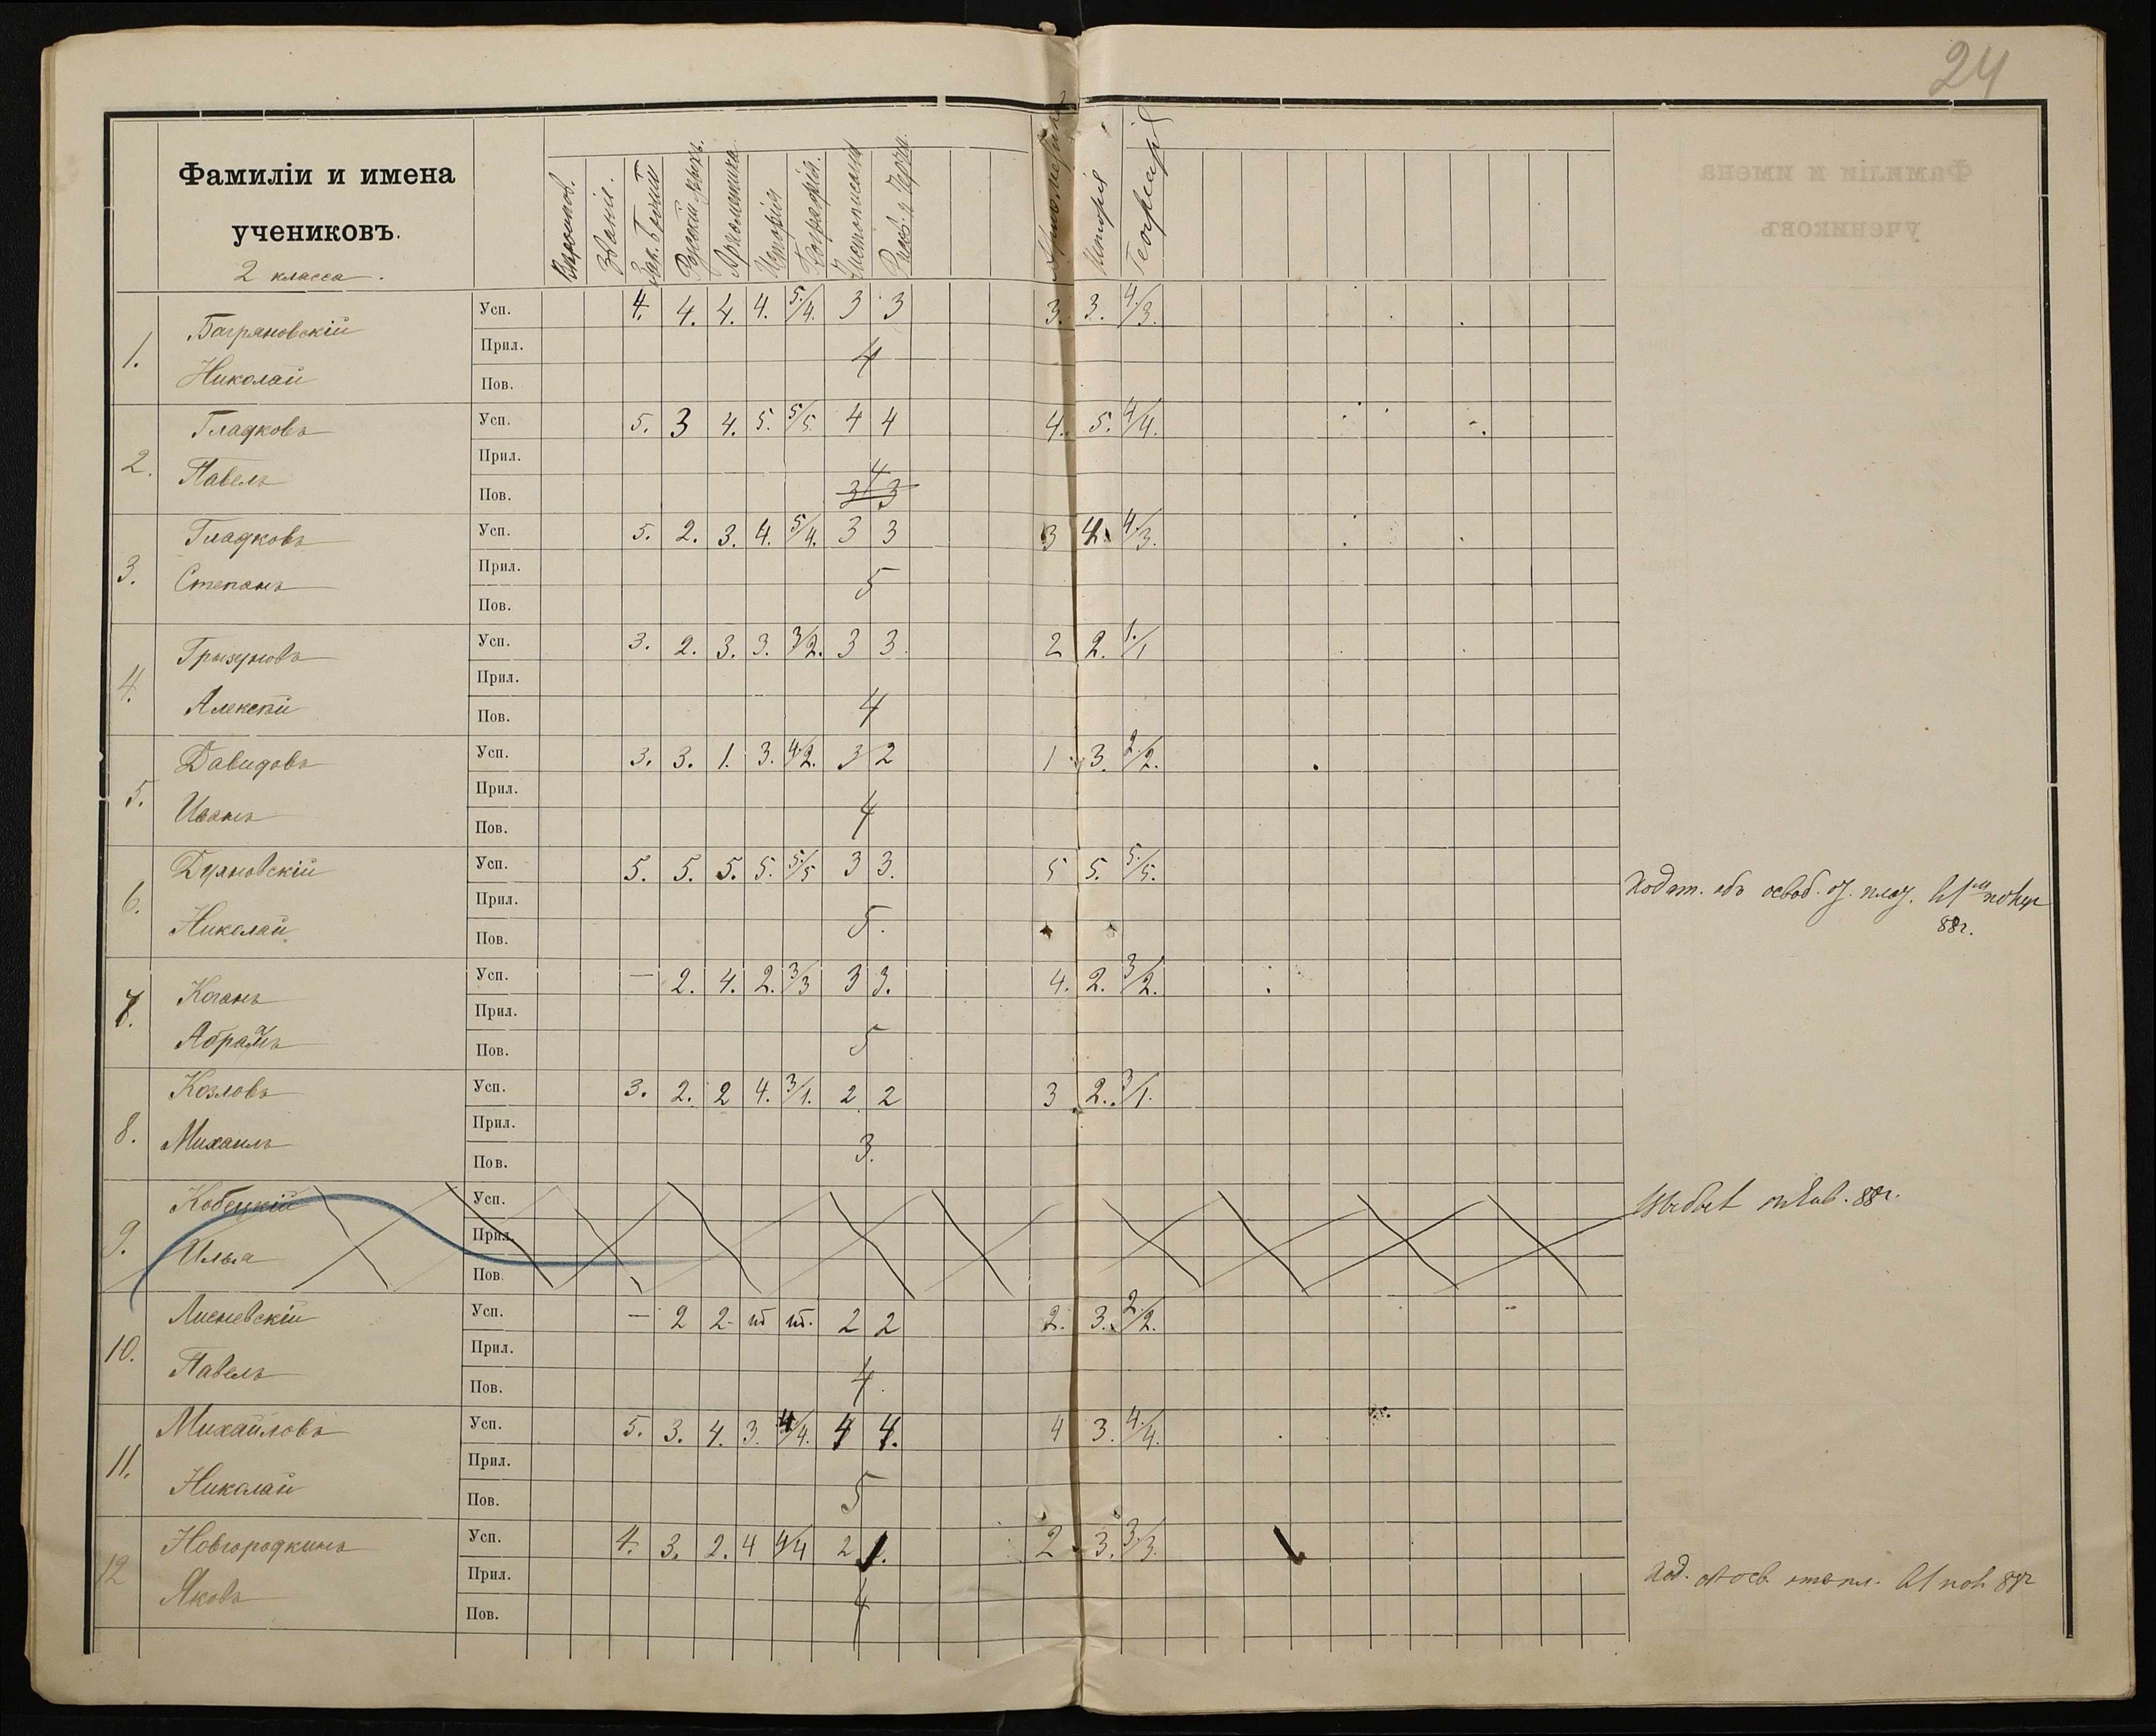 24
Фамиліи и имена
учениковъ.
2 класса.
Званіе.
Зак. Божій
Русскій языкъ.
Арѳометика
Исторія
Географія.
Чистописаніе
Рисов. и Черч.
Исторія
Географія
1. Багряновскій Усп. 4. 4. 4. 4. 5./4. 3 3 3. 3. 4./3.
Николай Прил. 4
Пов.
2. Гладковъ Усп. 5. 3 4. 5. 5/5. 4 4 4. 5. 4/4.
Павелъ Прил.
4
Пов. 3 3
3. Гладковъ Усп. 5. 2. 3. 4. 5/4. 3 3 3 4. 4./3.
Степанъ Прил. 5
Пов.
4. Грызуновъ Усп. 3. 2. 3. 3. 3/2. 3 3. 2 2. 1./1
Алексѣй Прил.
Пов. 4
5. Давидовъ Усп. 3. 3. 1. 3. 4./2. 3 2 1 3. 2./2.
Иванъ Прил. 4
Пов.
6. Дуяновскій Усп. 5. 5. 5. 5. 5./5 3 3. 5 5. 5./5. Ходат. объ освоб. от. плат. 88г.
Николай Прил. 5.
Пов.
7. Коганъ Усп. — 2. 4. 2. 3/3 3 3. 4. 2. 3/2.
Абрамъ Прил. 5
Пов.
8. Козловъ Усп. 3. 2. 2 4. 3/1. 2 2 3 2. 3/1.
Михаилъ Прил. 3.
Пов.
9. Кобецкій Усп. 88г.
Илья Прил.
Пов.
10. Лисневскій Усп. — 2 2 2 2 2. 3. 2./2.
Павелъ Прил. 4.
Пов.
11. Михайловъ Усп. 5. 3. 4. 3. 4/4. 4 4. 4 3. 4./4.
Николай Прил. 5
Пов.
12 Новгородкинъ Усп. 4. 3. 2. 4 4/4 2 1. 2 3. 3/3. 88г
Яковъ Прил. 4
Пов.